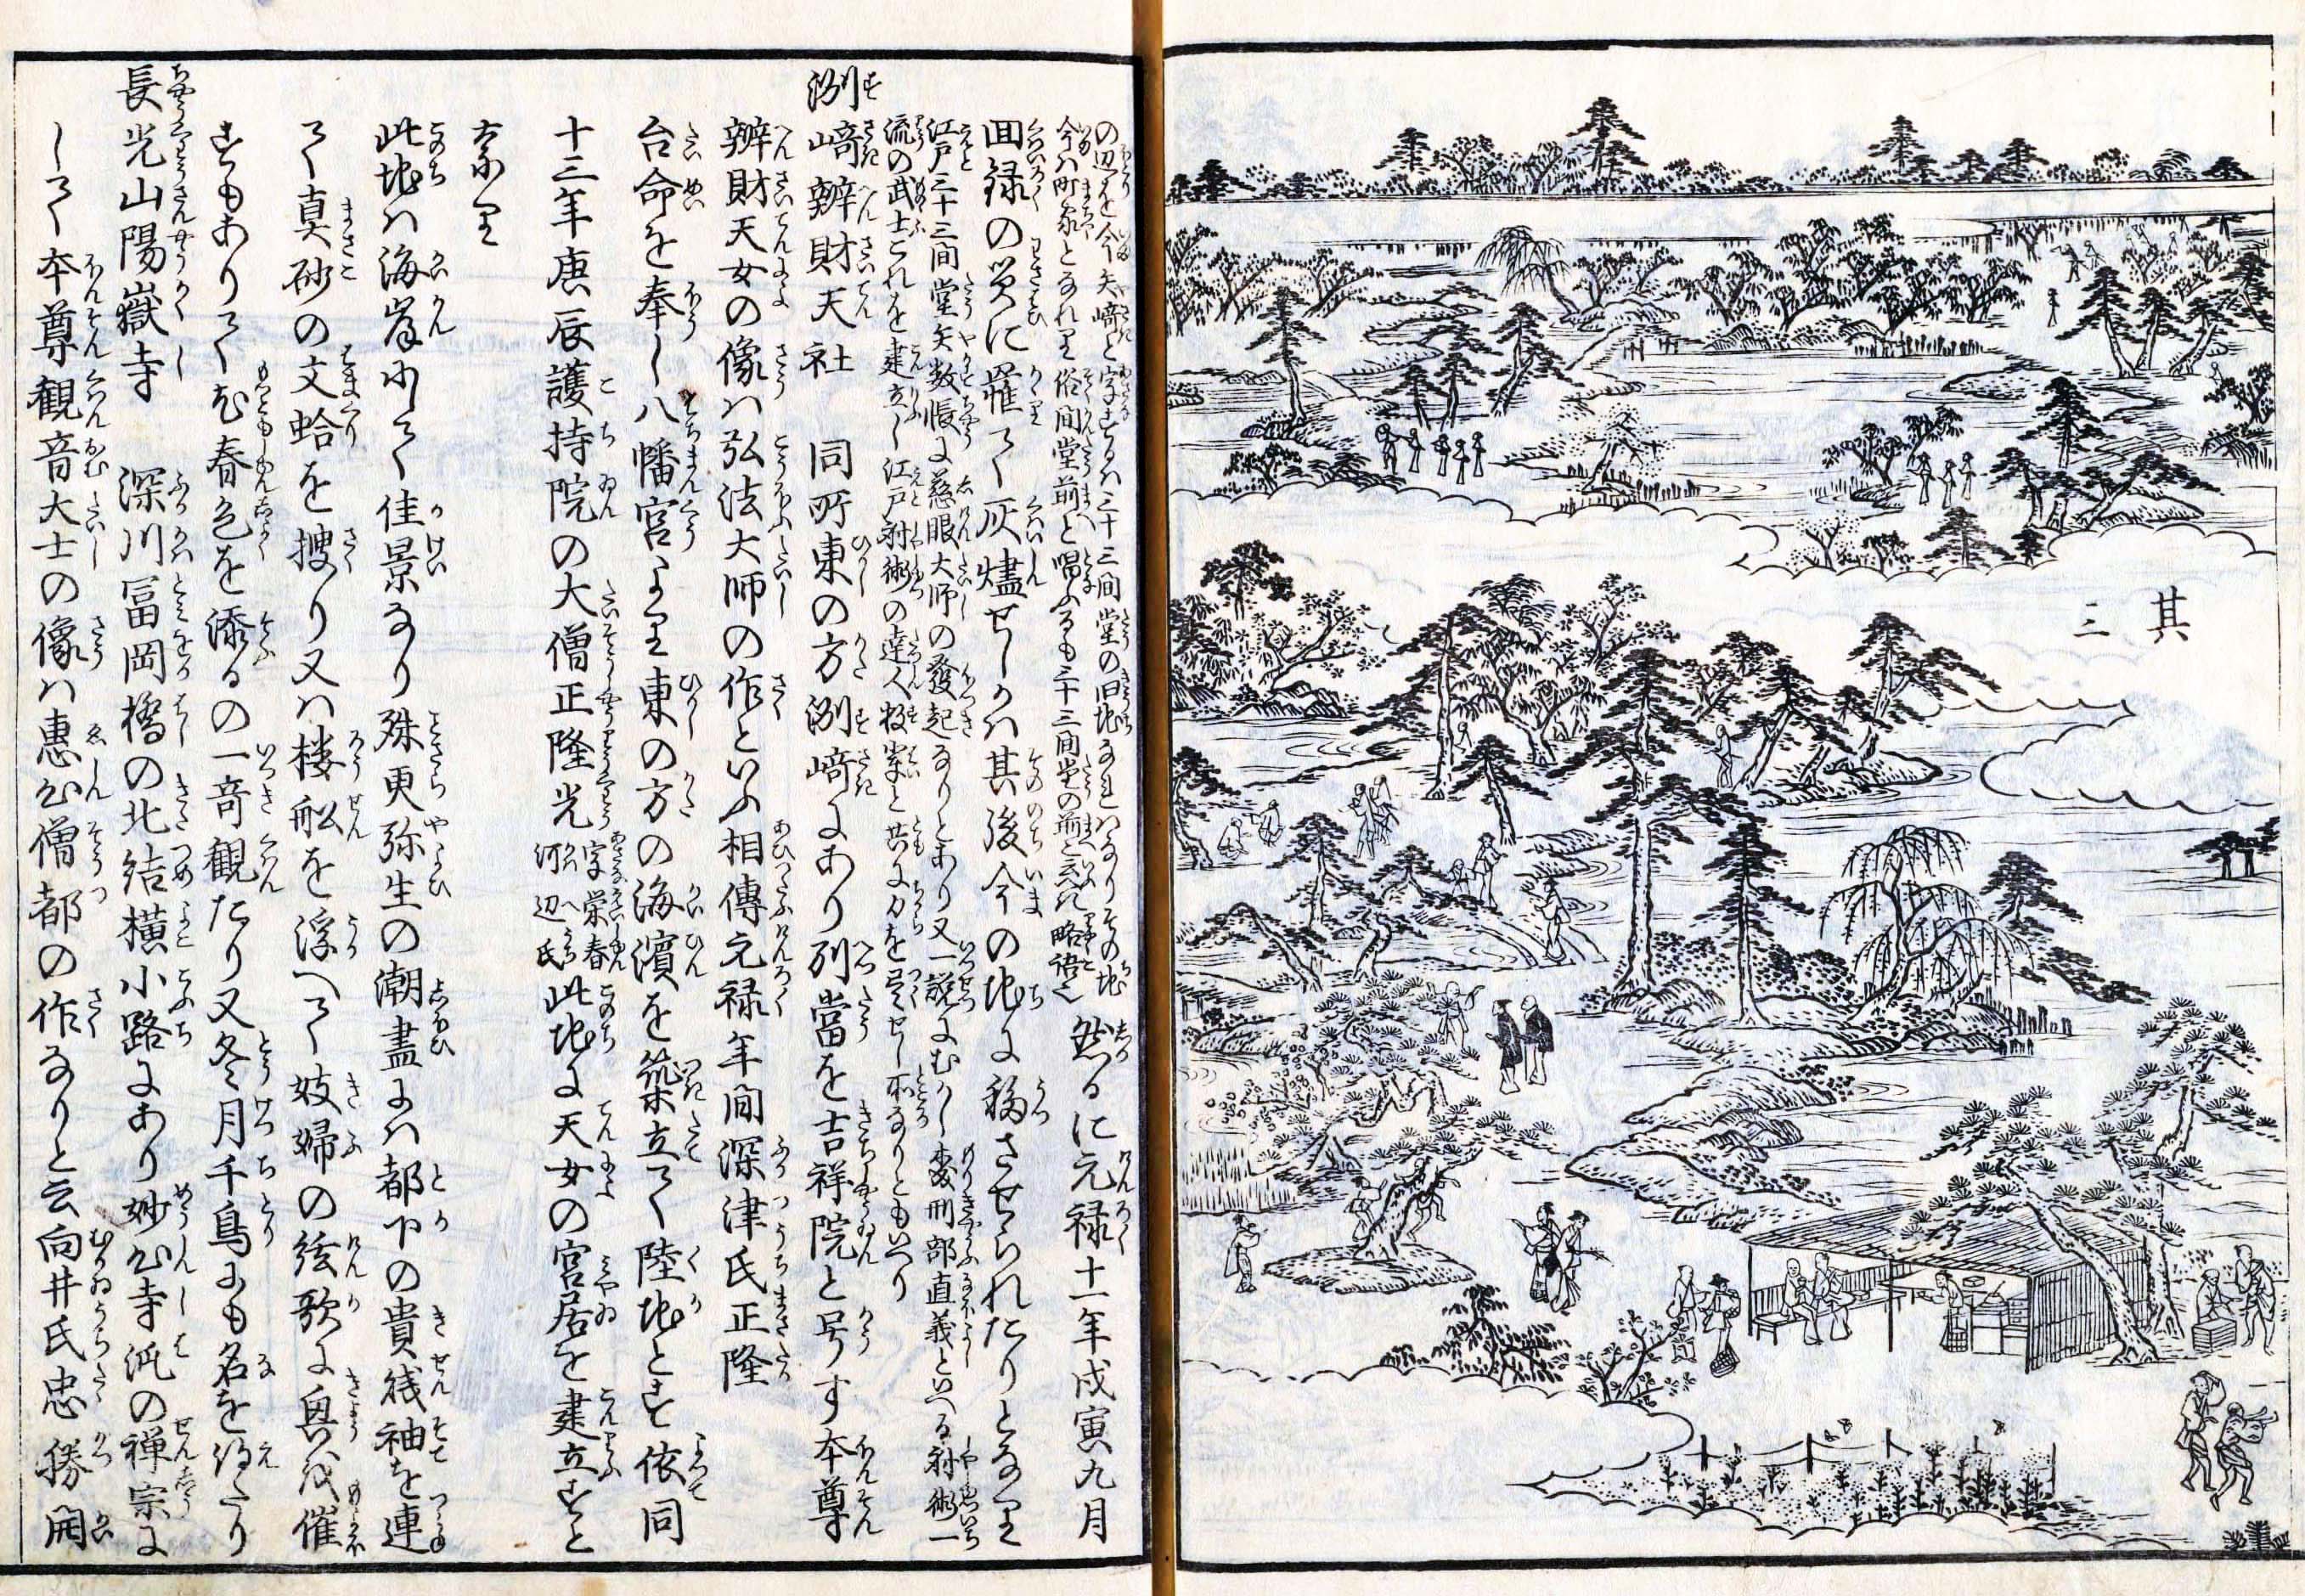 其三
の辺を今矢﨑と字するハ三十三間堂の旧地なれハなりその地
今ハ町家となれり俗間堂前と唱ふるも三十三間堂の前と云へる略語也
然るに元禄十一年戊寅九月
回録の災に罹て灰燼せしかハ其後今の地に移させられたりとなり
江戸三十三間堂矢数帳に慈眼大師の發起なりとあり又一説にむかし刑部直義といへる射術一
流の武士これを建立し江戸射術の達人数輩と共に力を尽せし所なりともいへり
洲﨑辨財天社　同所東の方洲﨑にあり別當を吉祥院と号す本尊
辨財天女の像ハ弘法大師の作といふ相傳元禄年間深津氏正隆
台命を奉し八幡宮より東の方の海濱を築立て陸地とす依同
十三年庚辰護持院の大僧正隆光字栄春河辺氏此地に天女の宮居を建立すと
なり
此地ハ海岸にして佳景なり殊更弥生の潮盡にハ都下の貴賎袖を連
て真砂の文蛤を捜り又ハ楼舩を浮へて妓婦の絃歌に興を催
すもありて尤春色を添るの一奇観たり又冬月千鳥にも名を得たり
長光山陽嶽寺　深川冨岡橋の北結横小路にあり妙心寺派の禅宗に
して本尊観音大士の像ハ惠心僧都の作なりと云向井氏忠勝開